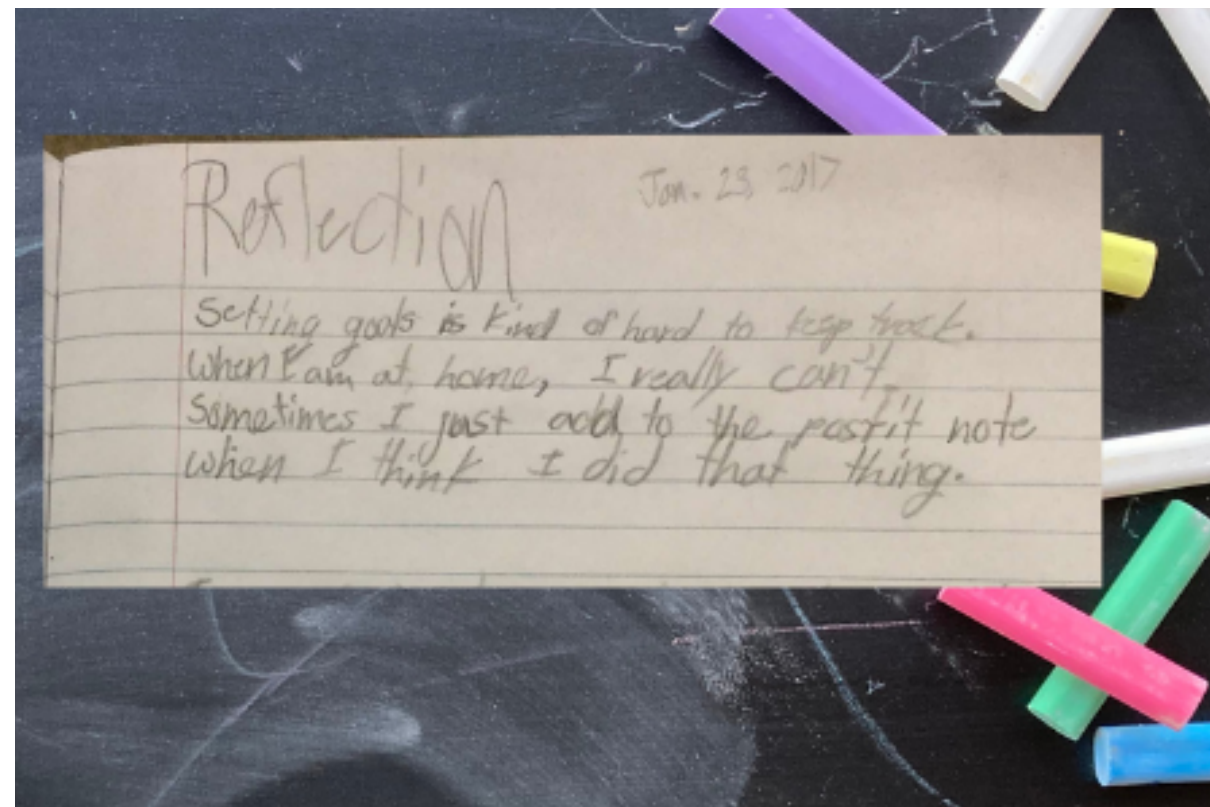 Reflection
Jan. 23, 2017
Setting goals is kind of hard to keep track.
When I am at home, I really can't.
Sometimes I just add to the postit note
when I think I did that thing.